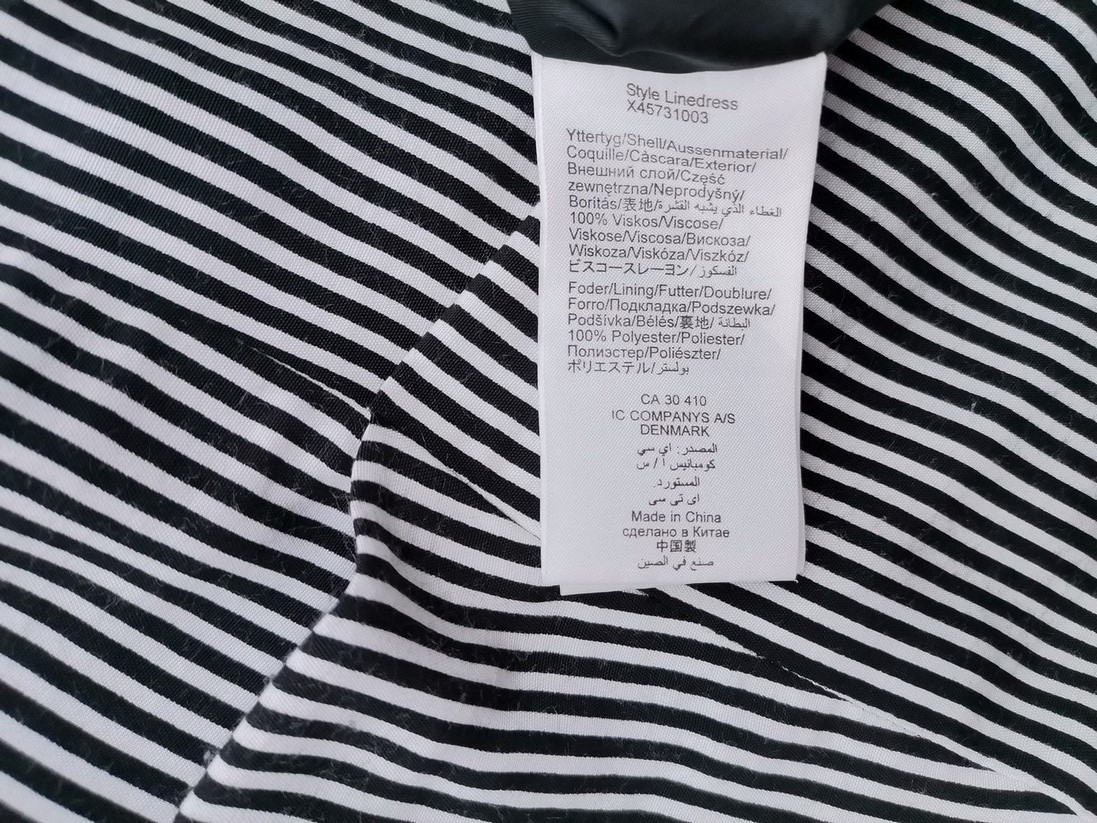 Style Linedress
X45731003
Yttertyg/Shell/Aussenmaterial/
Coquille/Càscara/Exterior/
Внешний слой/Część
zewnętrzna/Neprodyšný/
Borítás/表地/الغطاء الذي يشبه القشرة
100% Viskos/Viscose/
Viskose/Viscosa/Вискоза/
Wiskoza/Viskóza/Viszkóz/
ビスコースレーヨン/الفسكوز
Foder/Lining/Futter/Doublure/
Forro/Подкладка/Podszewka/
Podšívka/Bélés/裏地/البطانة
100% Polyester/Poliester/
Полиэстер/Poliészter/
ポリエステル/بولستر
CA 30 410
IC COMPANYS A/S
DENMARK
المصدر: اي سي
كومبانيس ا / س
المستورد.
اى تى سى
Made in China
сделано в Китае
中国製
صنع في الصين